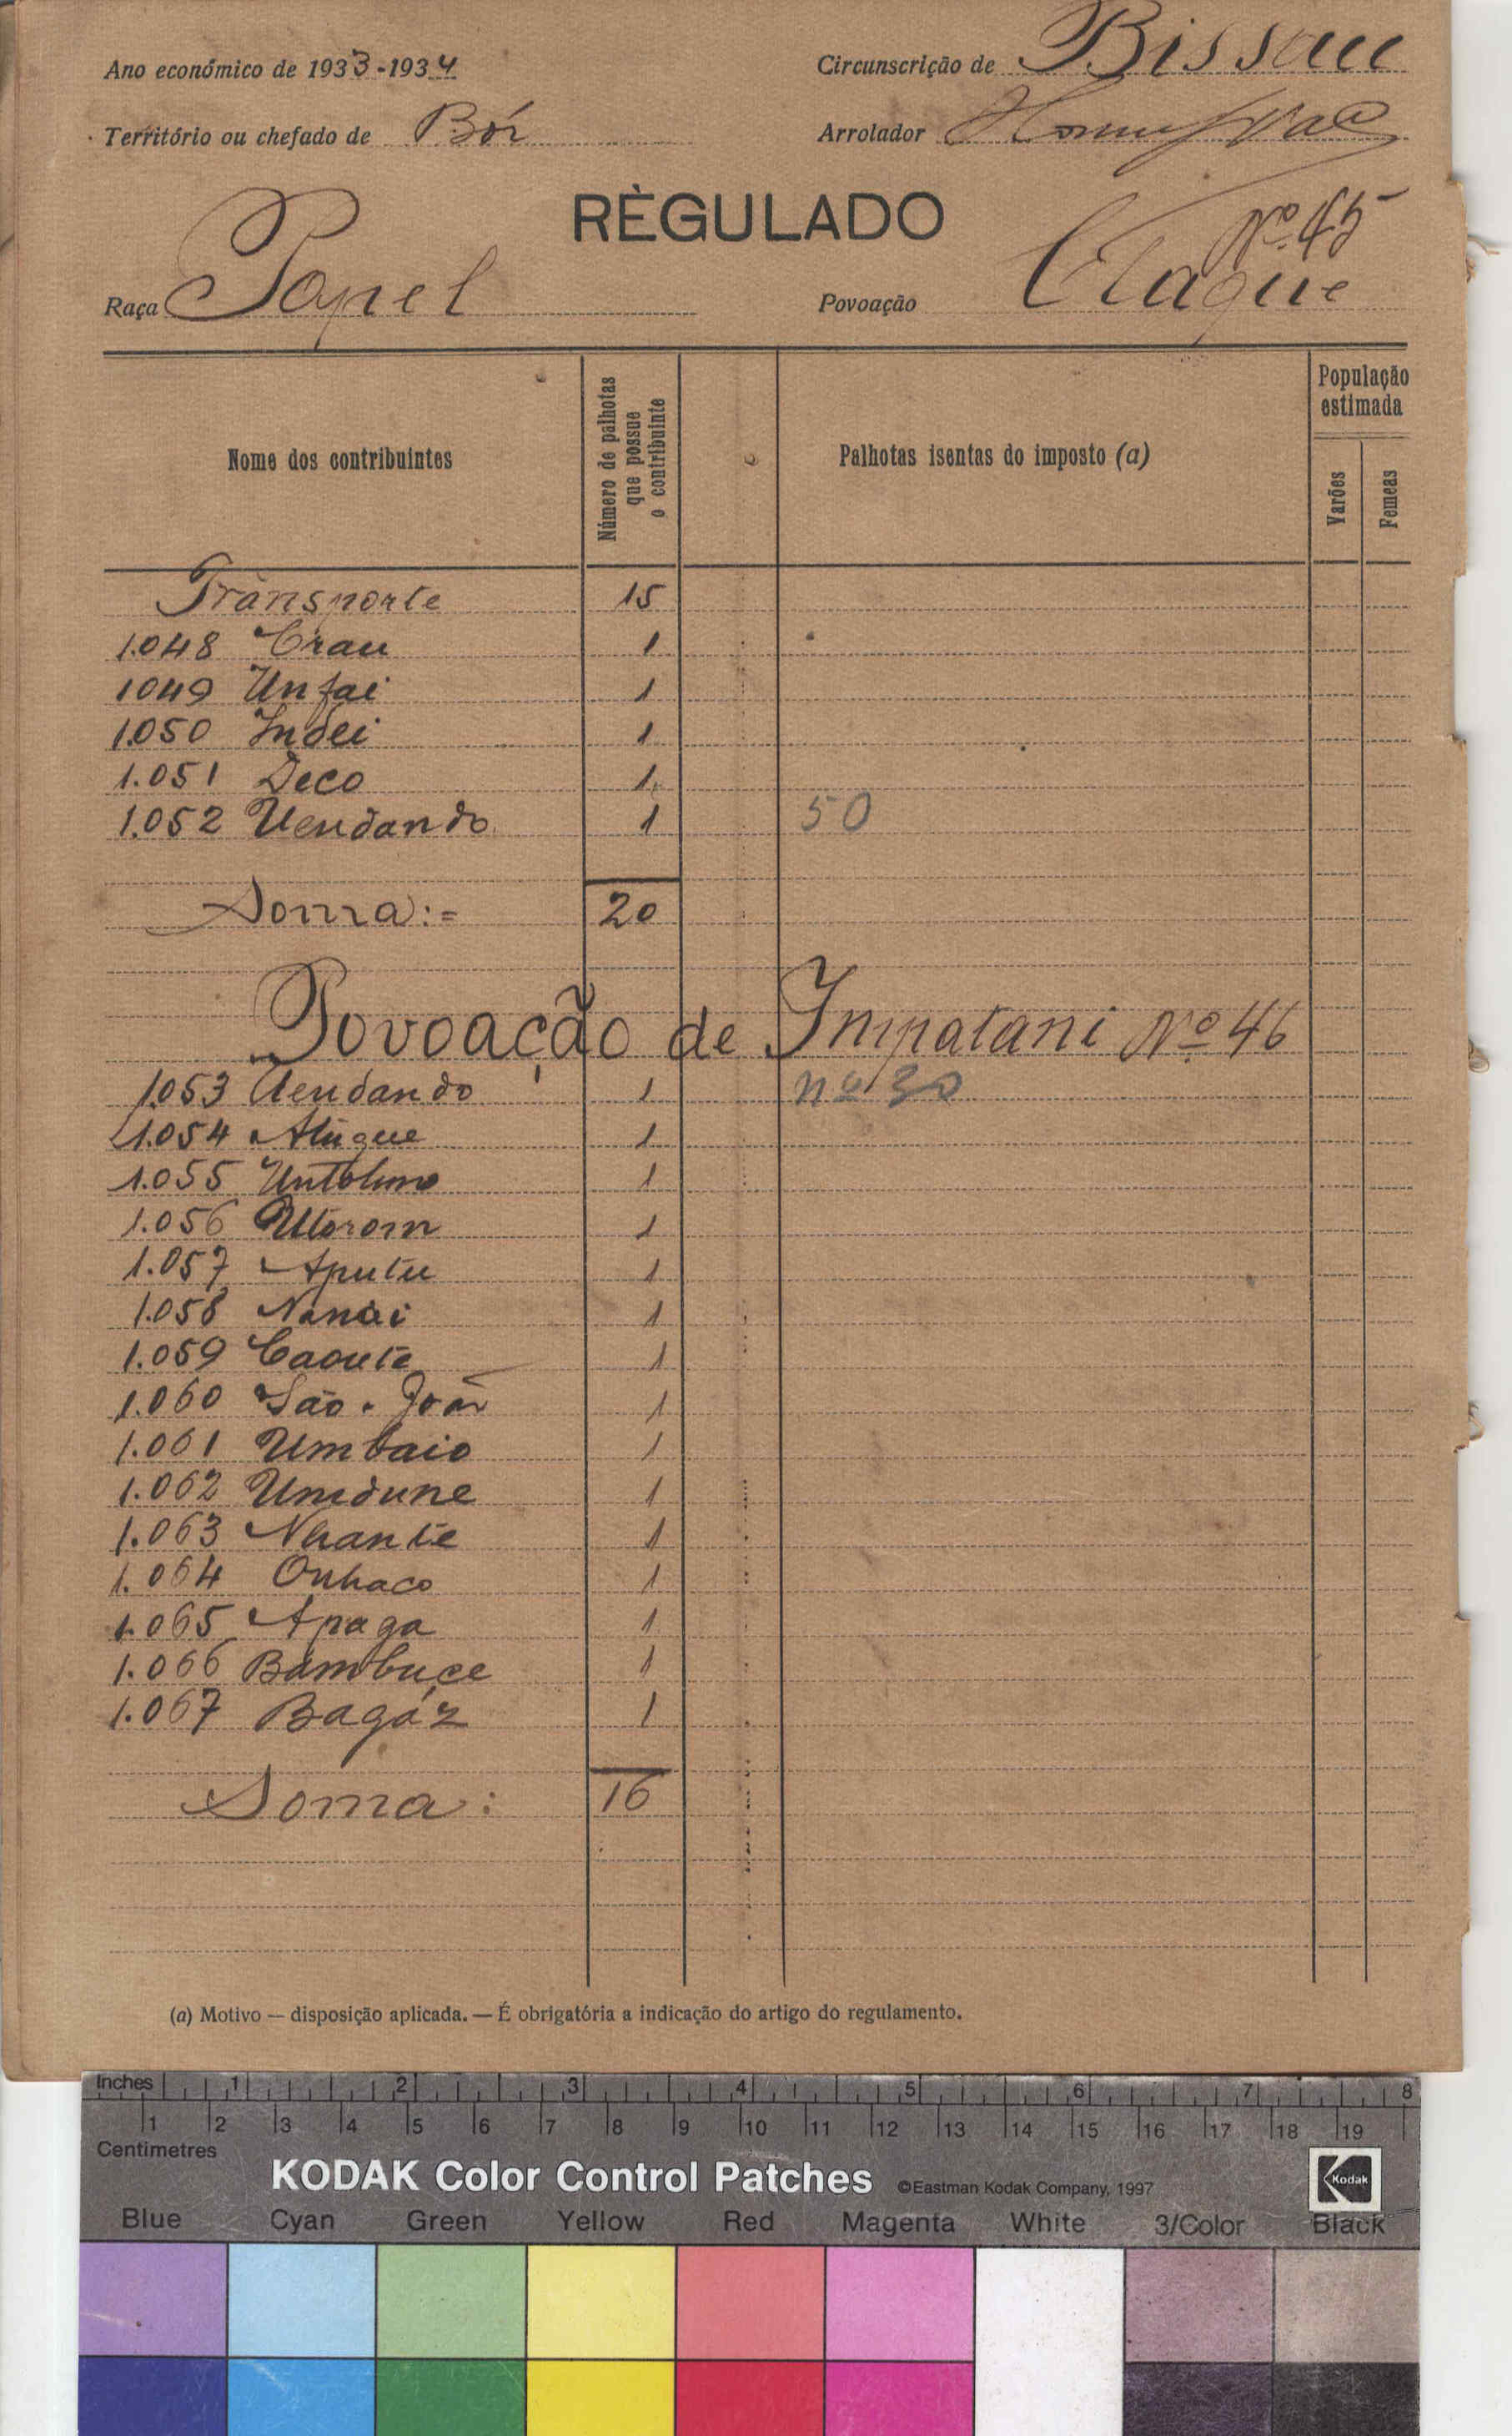 Ano económico de 1933-1934
Circunscrição de Bissau
Território ou chefado de Bór
Arrolador
RÈGULADO
Nº 45
Raça Papel
Povoação
Nome dos contribuintes
Número de palhotas que possue o contribuinte
Palhotas isentas do imposto (a)
População estimada
Varões
Femeas
Transporte 15
1.048 Crau 1
1049 Unfai 1
1.050 Indei 1
1.051 Deco 1
1.052 Uendando 1 50
Soma:= 20
Povoação de Impatani Nº 46
1.053 Uendando 1 nº 30
1.054 Atuque 1
1.055 1
1.056 Utorom 1
1.057 Aputu 1
1.058 Nanai 1
1.059 Caoute 1
1.060 São . João 1
1.061 Umbaio 1
1.062 Umdune 1
1.063 Nhante 1
1.064 Onhaco 1
1.065 Apaga 1
1.066 Bambuçe 1
1.067 Bagáz 1
Soma: 16
(a) Motivo — disposição aplicada. — É obrigatória a indicação do artigo do regulamento.
Inches 1 2 3 4 5 6 7 8
1 2 3 4 5 6 7 8 9 10 11 12 13 14 15 16 17 18 19
Centimetres
KODAK Color Control Patches ©Eastman Kodak Company, 1997 Kodak
Blue Cyan Green Yellow Red Magenta White 3/Color Black